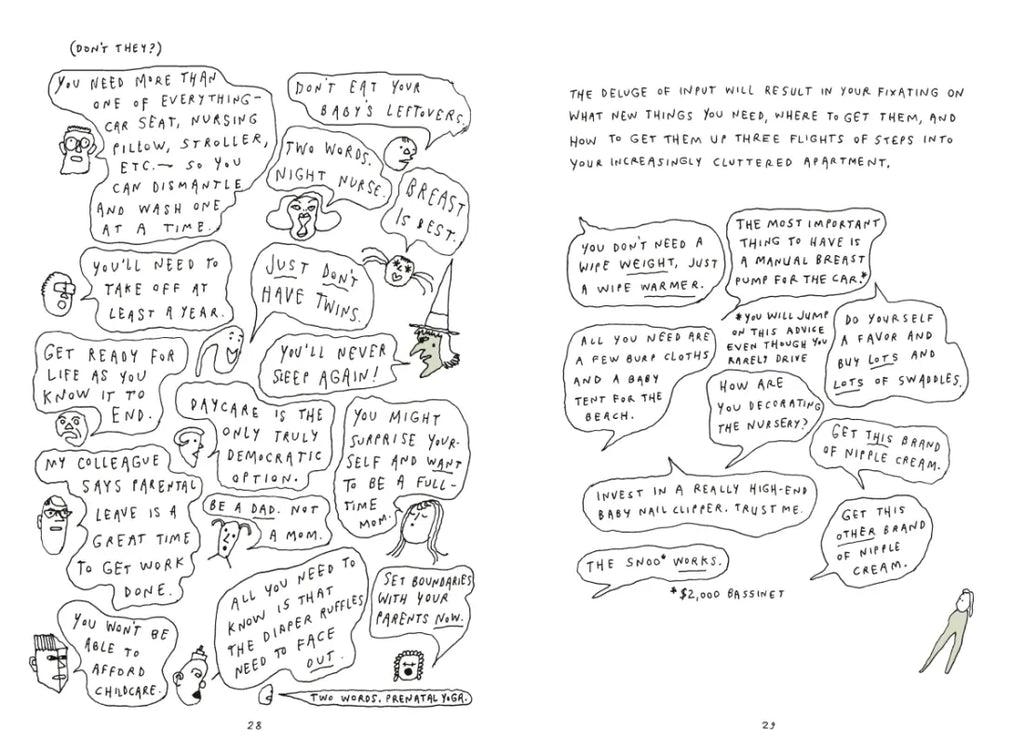 (DON'T THEY?)
YOU NEED MORE THAN
ONE OF EVERYTHING—
CAR SEAT, NURSING
PILLOW, STROLLER,
ETC.— SO YOU
CAN DISMANTLE
AND WASH ONE
AT A TIME.
DON'T EAT YOUR
BABY'S LEFTOVERS.
TWO WORDS.
NIGHT NURSE.
BREAST
IS BEST.
YOU'LL NEED TO
TAKE OFF AT
LEAST A YEAR.
JUST DON'T
HAVE TWINS.
GET READY FOR
LIFE AS YOU
KNOW IT TO
END.
YOU'LL NEVER
SLEEP AGAIN!
DAYCARE IS THE
ONLY TRULY
DEMOCRATIC
OPTION.
YOU MIGHT
SURPRISE YOUR-
SELF AND WANT
TO BE A FULL-
TIME
MOM.
MY COLLEAGUE
SAYS PARENTAL
LEAVE IS A
GREAT TIME
TO GET WORK
DONE.
BE A DAD. NOT
A MOM.
ALL YOU NEED TO
KNOW IS THAT
THE DIAPER RUFFLES
NEED TO FACE
OUT.
SET BOUNDARIES
WITH YOUR
PARENTS NOW.
YOU WON'T BE
ABLE TO
AFFORD
CHILDCARE.
TWO WORDS. PRENATAL YOGA.
28
THE DELUGE OF INPUT WILL RESULT IN YOUR FIXATING ON
WHAT NEW THINGS YOU NEED, WHERE TO GET THEM, AND
HOW TO GET THEM UP THREE FLIGHTS OF STEPS INTO
YOUR INCREASINGLY CLUTTERED APARTMENT.
YOU DON'T NEED A
WIPE WEIGHT, JUST
A WIPE WARMER.
THE MOST IMPORTANT
THING TO HAVE IS
A MANUAL BREAST
PUMP FOR THE CAR.*
*YOU WILL JUMP
ON THIS ADVICE
EVEN THOUGH YOU
RARELY DRIVE
ALL YOU NEED ARE
A FEW BURP CLOTHS
AND A BABY
TENT FOR THE
BEACH.
DO YOURSELF
A FAVOR AND
BUY LOTS AND
LOTS OF SWADDLES.
HOW ARE
YOU DECORATING
THE NURSERY?
GET THIS BRAND
OF NIPPLE CREAM.
INVEST IN A REALLY HIGH-END
BABY NAIL CLIPPER. TRUST ME.
GET THIS
OTHER BRAND
OF NIPPLE
CREAM.
THE SNOO* WORKS.
*$2,000 BASSINET
29